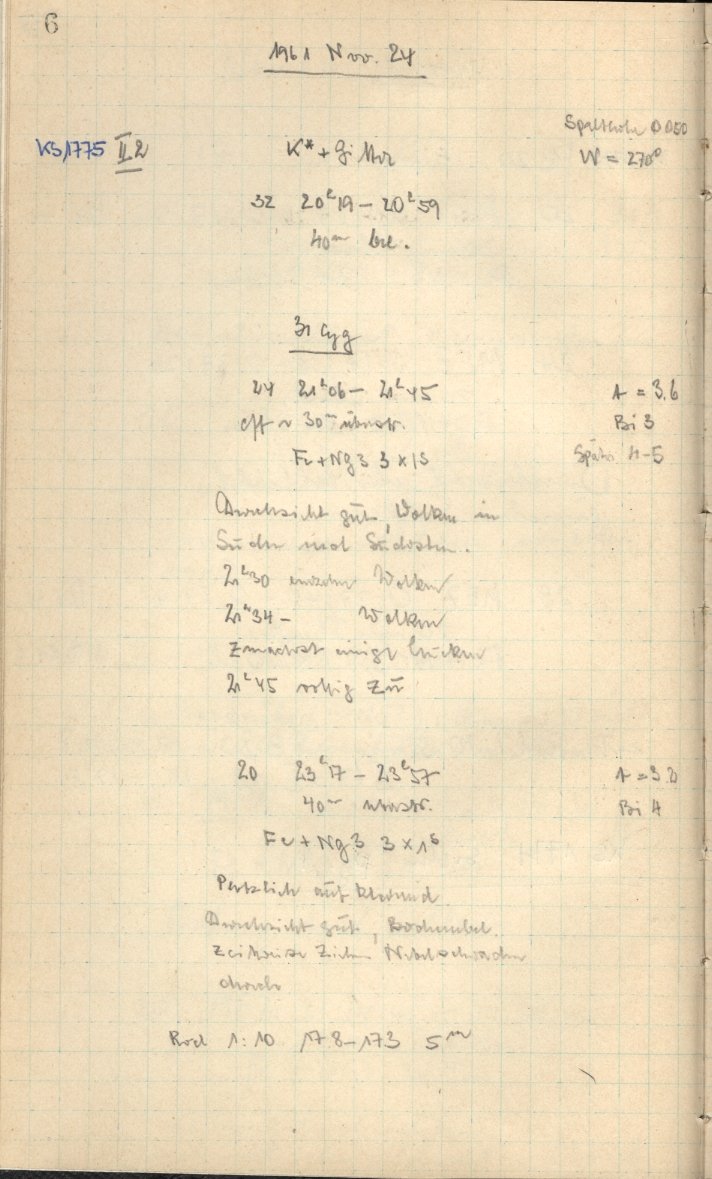 6
1961 Nov. 24
Spalthöhe 0.050
KS1775 II.2 K* + Gitter W = 270°
32 20ʰ19 – 20ʰ59
40ᵐ bel.
31 Cyg
24 21ʰ06 – 21ʰ45 A = 3.6
eff ~ 30ᵐ überstr. Bi 3
Fe + Ng3 3 x 1ˢ Später 4-5
Durchsicht gut, Wolken in
Süden und Südosten.
21ʰ30 einzelne Wolken
21ʰ34 – Wolken
Zunächst einige Lücken
21ʰ45 völlig zu
20 23ʰ17 – 23ʰ57 A = 3.2
40ᵐ überstr. Bi 4
Fe + Ng3 3 x 1ˢ
Plötzlich aufklarend
Durchsicht gut, Bodennebel.
Zeitweise ziehen Nebelschwaden
durch
1:10 178 – 173 5ᵐ